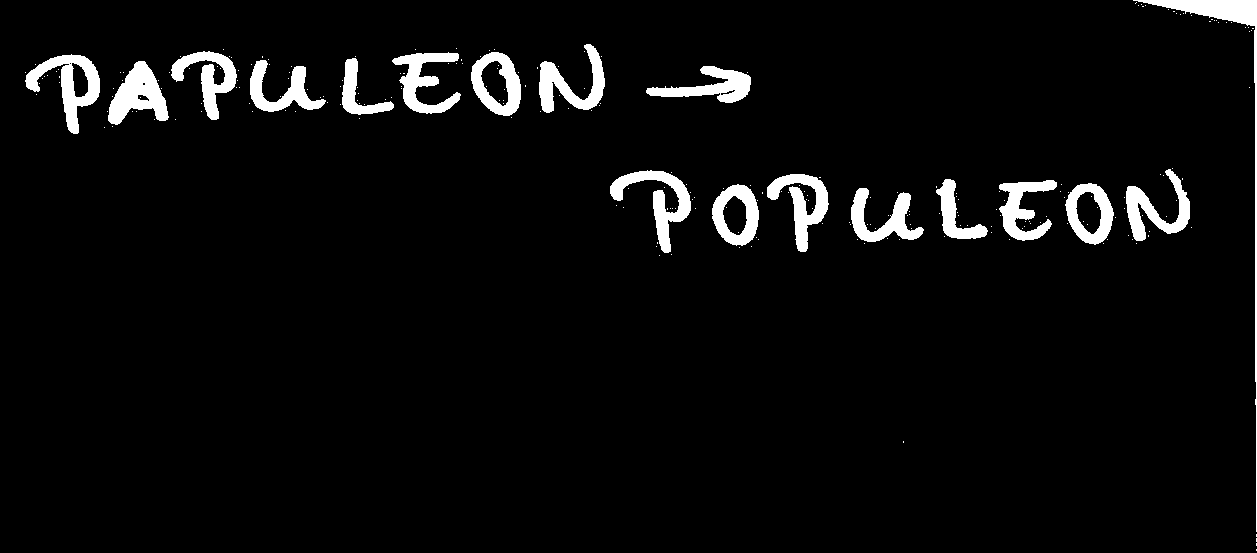 PAPULEON →
POPULEON